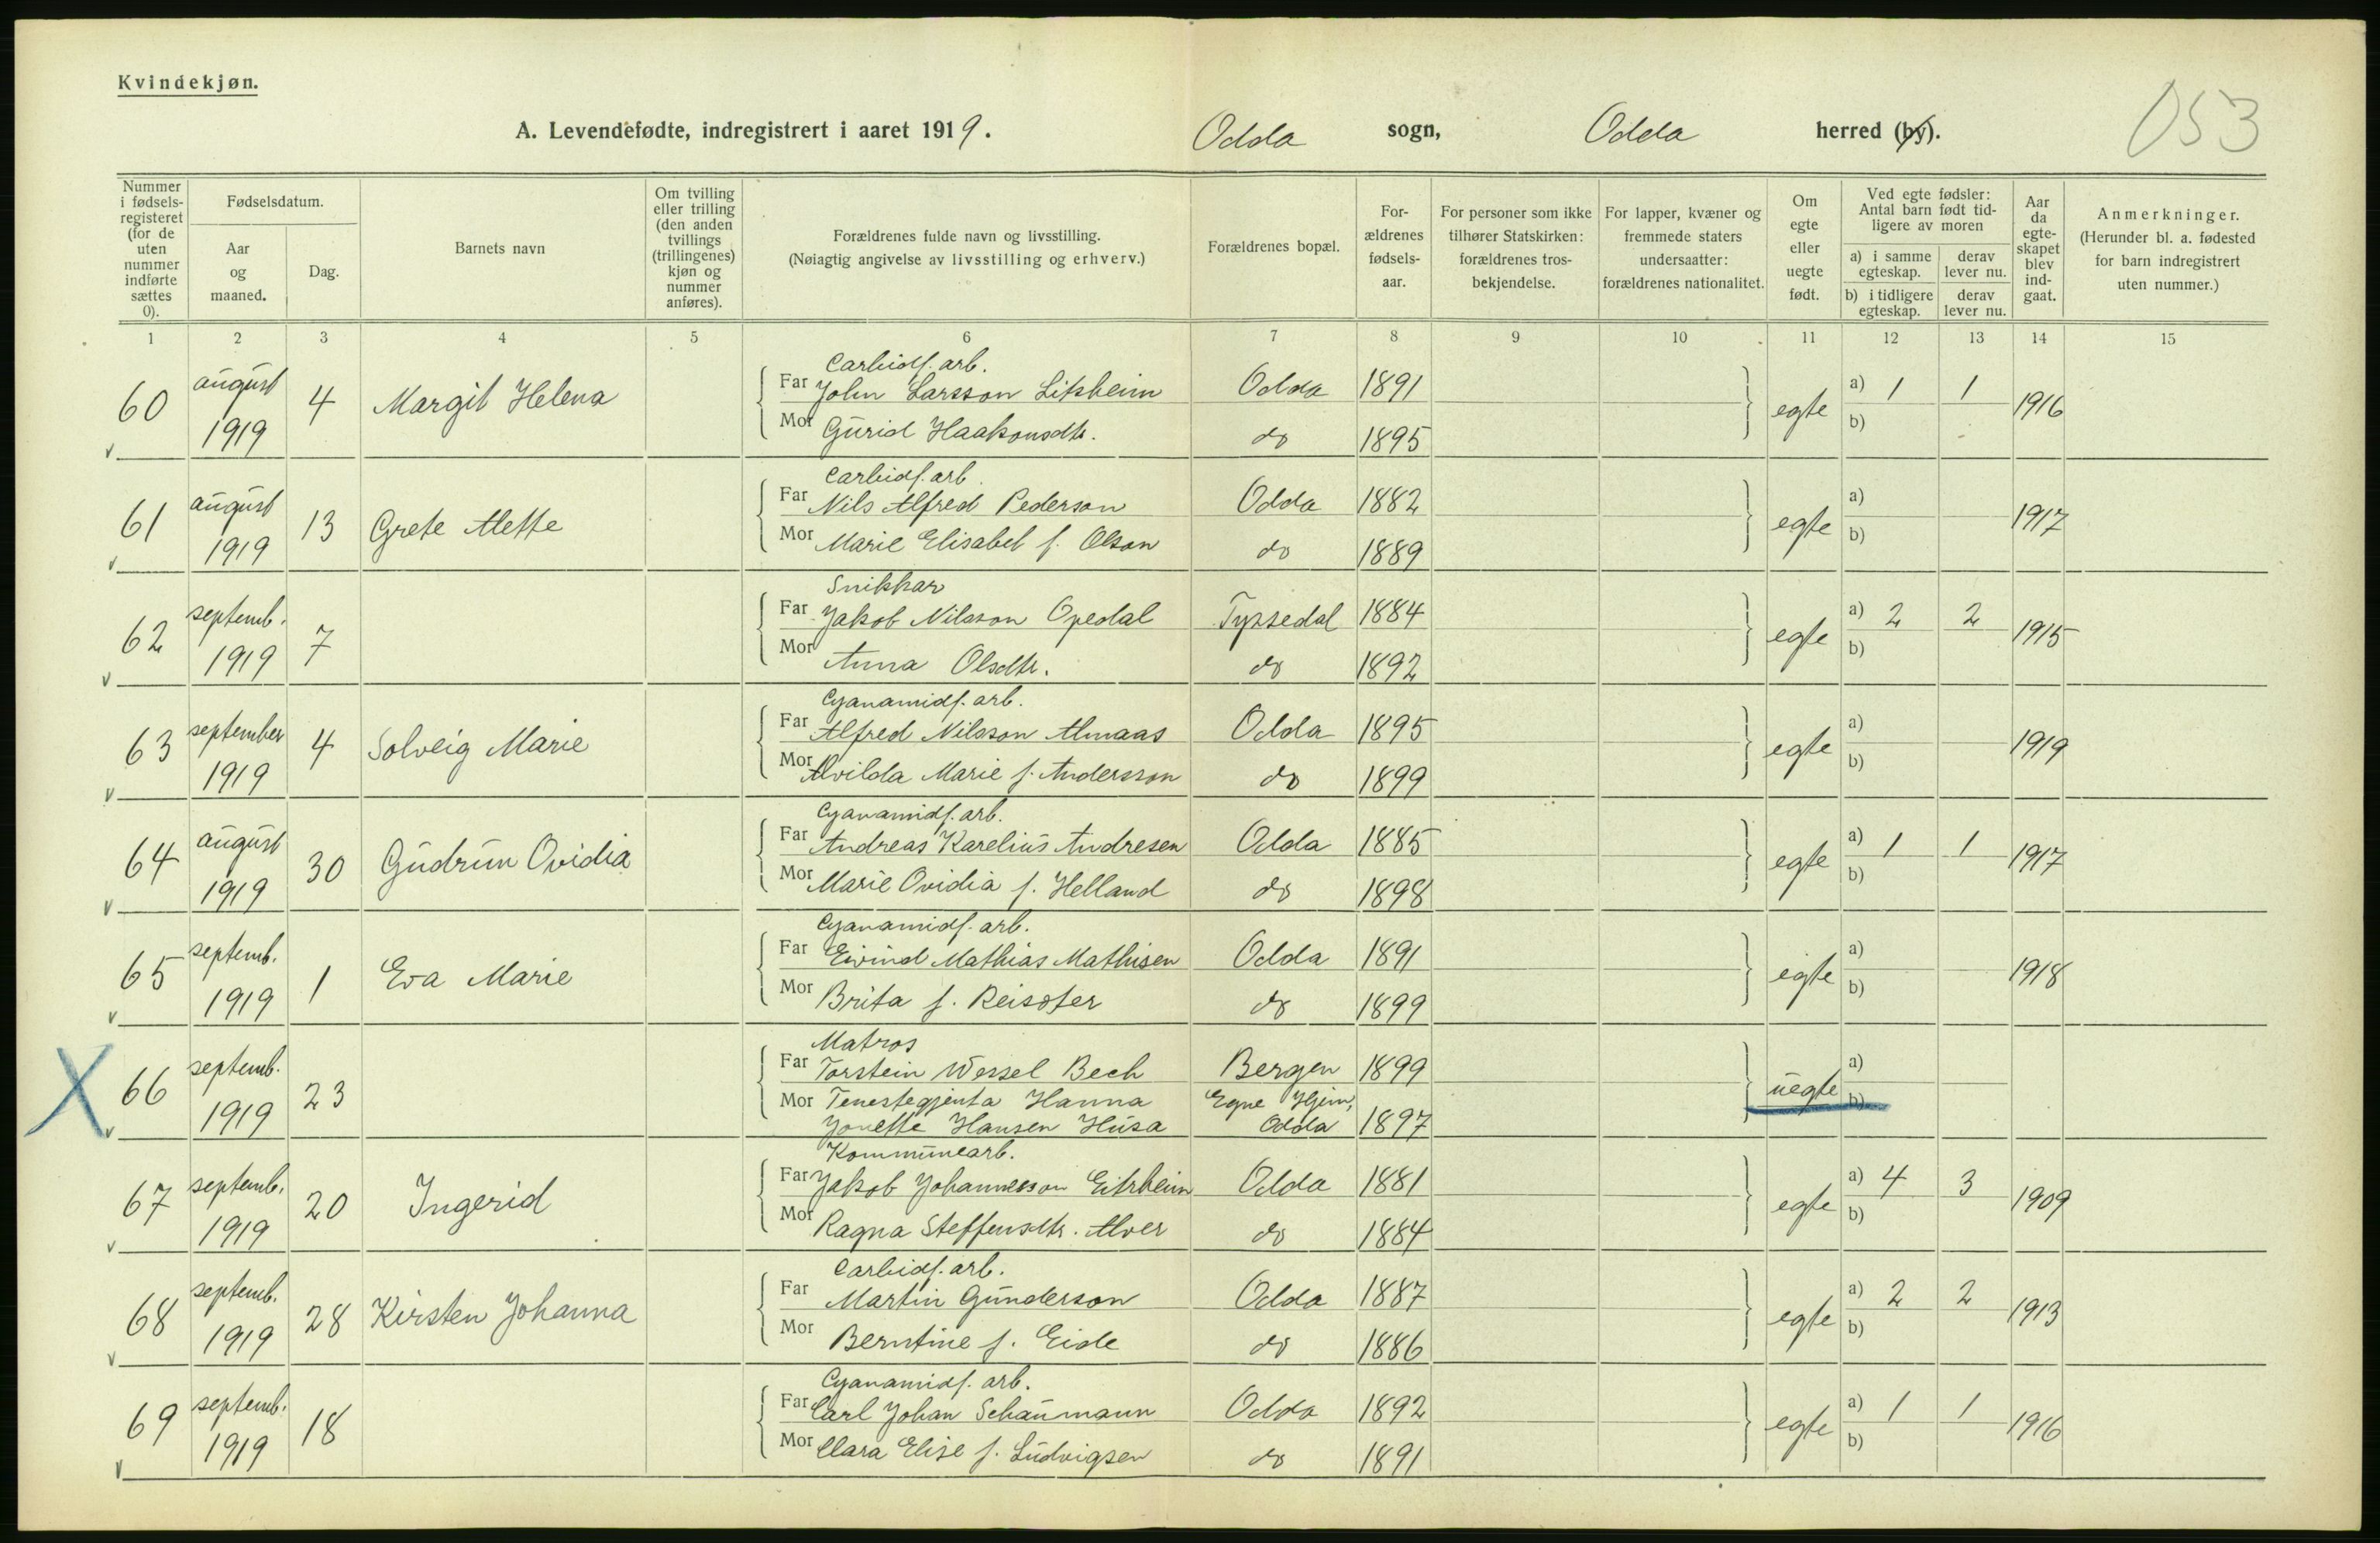 Kvindekjøn.
A. Levendefødte, indregistrert i aaret 1919. Odda sogn, Odda herred (by). 053
Nummer i fødsels-registeret (for de uten nummer indførte sættes 0).
Fødselsdatum.
Aar og maaned.
Dag.
Barnets navn
Om tvilling eller trilling (den anden tvillings (trillingenes) kjøn og nummer anføres).
Forældrenes fulde navn og livsstilling.
(Nøiagtig angivelse av livsstilling og erhverv.)
Forældrenes bopæl.
For-ældrenes fødsels-aar.
For personer som ikke tilhører Statskirken: forældrenes tros-bekjendelse.
For lapper, kvæner og fremmede staters undersaatter: forældrenes nationalitet.
Om egte eller uegte født.
Ved egte fødsler: Antal barn født tid-ligere av moren
a) i samme egteskap. derav lever nu.
b) i tidligere egteskap. derav lever nu.
Aar da egte-skapet blev ind-gaat.
Anmerkninger.
(Herunder bl. a. fødested for barn indregistrert uten nummer.)
1 2 3 4 5 6 7 8 9 10 11 12 13 14 15
Carbidf. arb.
60 august 1919 4 Margit Helena Far John Larsson Litsheim Odda 1891 egte a) 1 1 1916
Mor Gurid Haakonsdtr. do 1895 b)
Carbidf. arb.
61 august 1919 13 Grete Alette Far Nils Alfred Pederson Odda 1882 egte a) 1917
Mor Marie Elisabet f. Olson do 1889 b)
Snikkar
62 septemb. 1919 7 Far Jakob Nilsson Opedal Tyssedal 1884 egte a) 2 2 1915
Mor Anna Olsdtr. do 1892 b)
Cyanamidf. arb.
63 september 1919 4 Solveig Marie Far Alfred Nilsson Almaas Odda 1895 egte a) 1919
Mor Alvilda Marie f. Andersson do 1899 b)
Cyanamidf. arb.
64 august 1919 30 Gudrun Ovidia Far Andreas Karelius Andresen Odda 1885 egte a) 1 1 1917
Mor Marie Ovidia f. Helland do 1898 b)
Cyanamidf. arb.
65 septemb. 1919 1 Eva Marie Far Eivind Mathias Mathisen Odda 1891 egte a) 1918
Mor Brita f. Reisæter do 1899 b)
Matros
X 66 septemb. 1919 23 Far Torstein Wessel Bech Bergen 1899 uegte a)
Mor Tenestegjenta Hanna Egne Hjem, b)
Jonette Hansen Husa Odda 1897
Kommunearb.
67 septemb. 1919 20 Ingerid Far Jakob Johannesson Eitrheim Odda 1881 egte a) 4 3 1909
Mor Ragna Steffensdtr. Alver do 1884 b)
Carbidf. arb.
68 septemb. 1919 28 Kirsten Johanna Far Martin Gunderson Odda 1887 egte a) 2 2 1913
Mor Berntine f. Eide do 1886 b)
Cyanamidf. arb.
69 septemb. 1919 18 Far Carl Johan Schaumann Odda 1892 egte a) 1 1 1916
Mor Clara Elise f. Ludvigsen do 1891 b)